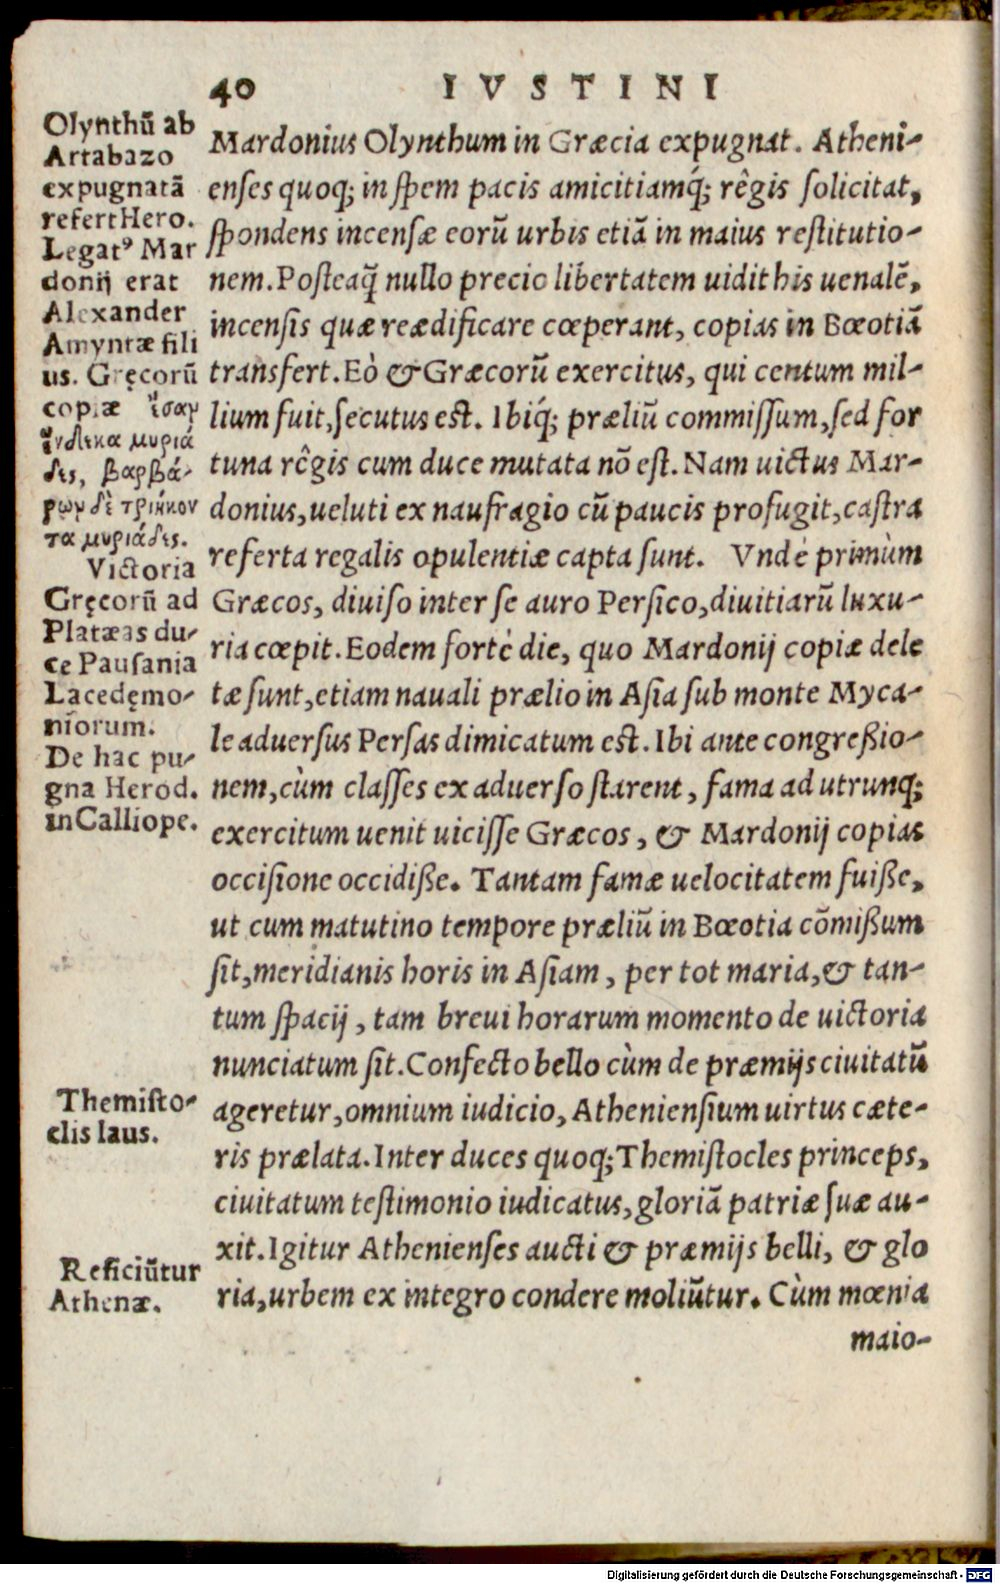 40 IVSTINI
Olynthū ab
Artabazo
expugnatā
refert Hero.
Legatꝰ Mar
donij erat
Alexander
Amyntæ fili
us. Gręcorū
copiæ ἦσαν
ἕνδεκα μυριά
δες, βαρβά-
ρων δὲ τριήκον
τα μυριάδες.
Victoria
Gręcorū ad
Platæas du-
ce Pausania
Lacedęmo-
niorum.
De hac pu-
gna Herod.
in Calliope.
Themisto-
clis laus.
Reficiūtur
Athenæ.
Mardonius Olynthum in Græcia expugnat. Atheni-
enſes quoq; in ſpem pacis amicitiamq́; rêgis ſolicitat,
ſpondens incenſæ eorū urbis etiā in maius reſtitutio-
nem. Poſteaq̃ nullo precio libertatem uidit his uenalē,
incenſis quæ reædificare cœperant, copias in Bœotiā
transfert. Eò & Græcorū exercitus, qui centum mil-
lium fuit, ſecutus eſt. Ibiq́; præliū commiſſum, ſed for
tuna rêgis cum duce mutata nō eſt. Nam uictus Mar-
donius, ueluti ex naufragio cū paucis profugit, caſtra
referta regalis opulentiæ capta ſunt. Vndè primùm
Græcos, diuiſo inter ſe auro Perſico, diuitiarū luxu-
ria cœpit. Eodem fortè die, quo Mardonij copiæ dele
tæ ſunt, etiam nauali prælio in Aſia ſub monte Myca-
le aduerſus Perſas dimicatum eſt. Ibi ante congreßio-
nem, cùm claſſes ex aduerſo ſtarent, fama ad utrunq;
exercitum uenit uiciſſe Græcos, & Mardonij copias
occiſione occidiße. Tantam famæ uelocitatem fuiße,
ut cum matutino tempore præliū in Bœotia cōmißum
ſit, meridianis horis in Aſiam, per tot maria, & tan-
tum ſpacij, tam breui horarum momento de uictoria
nunciatum ſit. Confecto bello cùm de præmijs ciuitatū
ageretur, omnium iudicio, Athenienſium uirtus cæte-
ris prælata. Inter duces quoq; Themiſtocles princeps,
ciuitatum teſtimonio iudicatus, gloriā patriæ ſuæ au-
xit. Igitur Athenienſes aucti & præmijs belli, & glo
ria, urbem ex integro condere moliūtur. Cùm mœnia
maio-
Digitalisierung gefördert durch die Deutsche Forschungsgemeinschaft - DFG